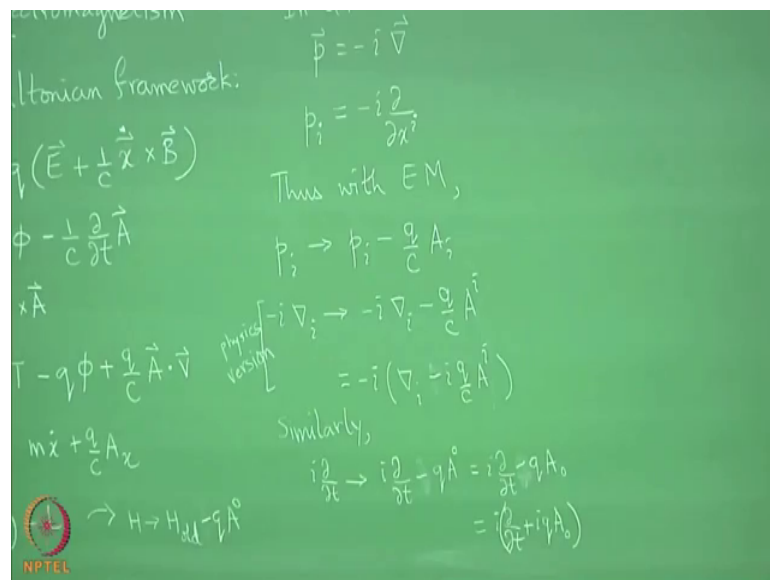 ctromagnetism
ltonian framework:
q(E⃗ + 1/c ẋ⃗ × B⃗)
φ - 1/c ∂/∂t A⃗
× A⃗
T - qφ + q/c A⃗ · v⃗
mẋ + q/c Aₓ
→ H → H_old - qA⁰
p⃗ = -i ∇⃗
pᵢ = -i ∂/∂xⁱ
Thus with EM,
pᵢ → pᵢ - q/c Aᵢ
physics version [ -i ∇ᵢ → -i ∇ᵢ - q/c Aⁱ
= -i (∇ᵢ - i q/c Aⁱ)
Similarly,
i ∂/∂t → i ∂/∂t - qA⁰ = i ∂/∂t - qA₀
= i(∂/∂t + iqA₀)
NPTEL